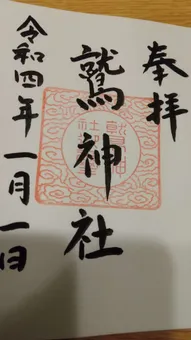 奉拝
鷲神社
令和四年一月一日